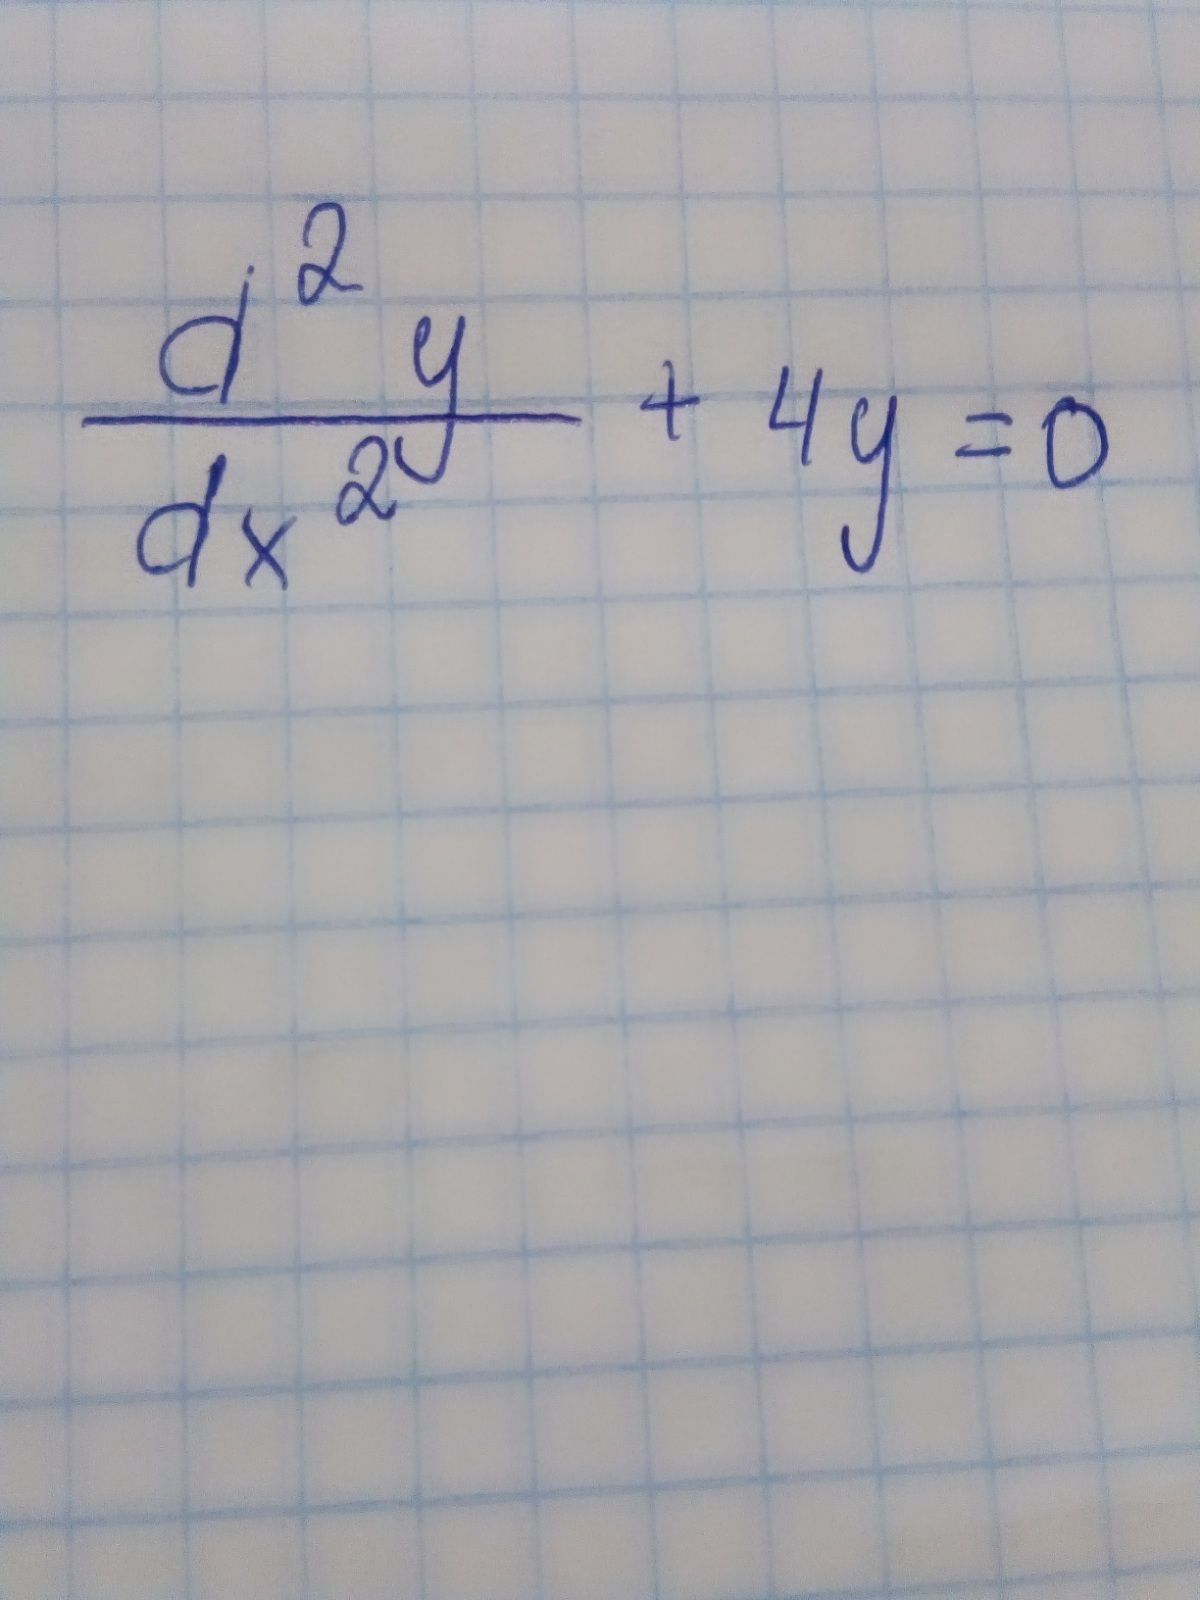 d²y/dx² + 4y = 0